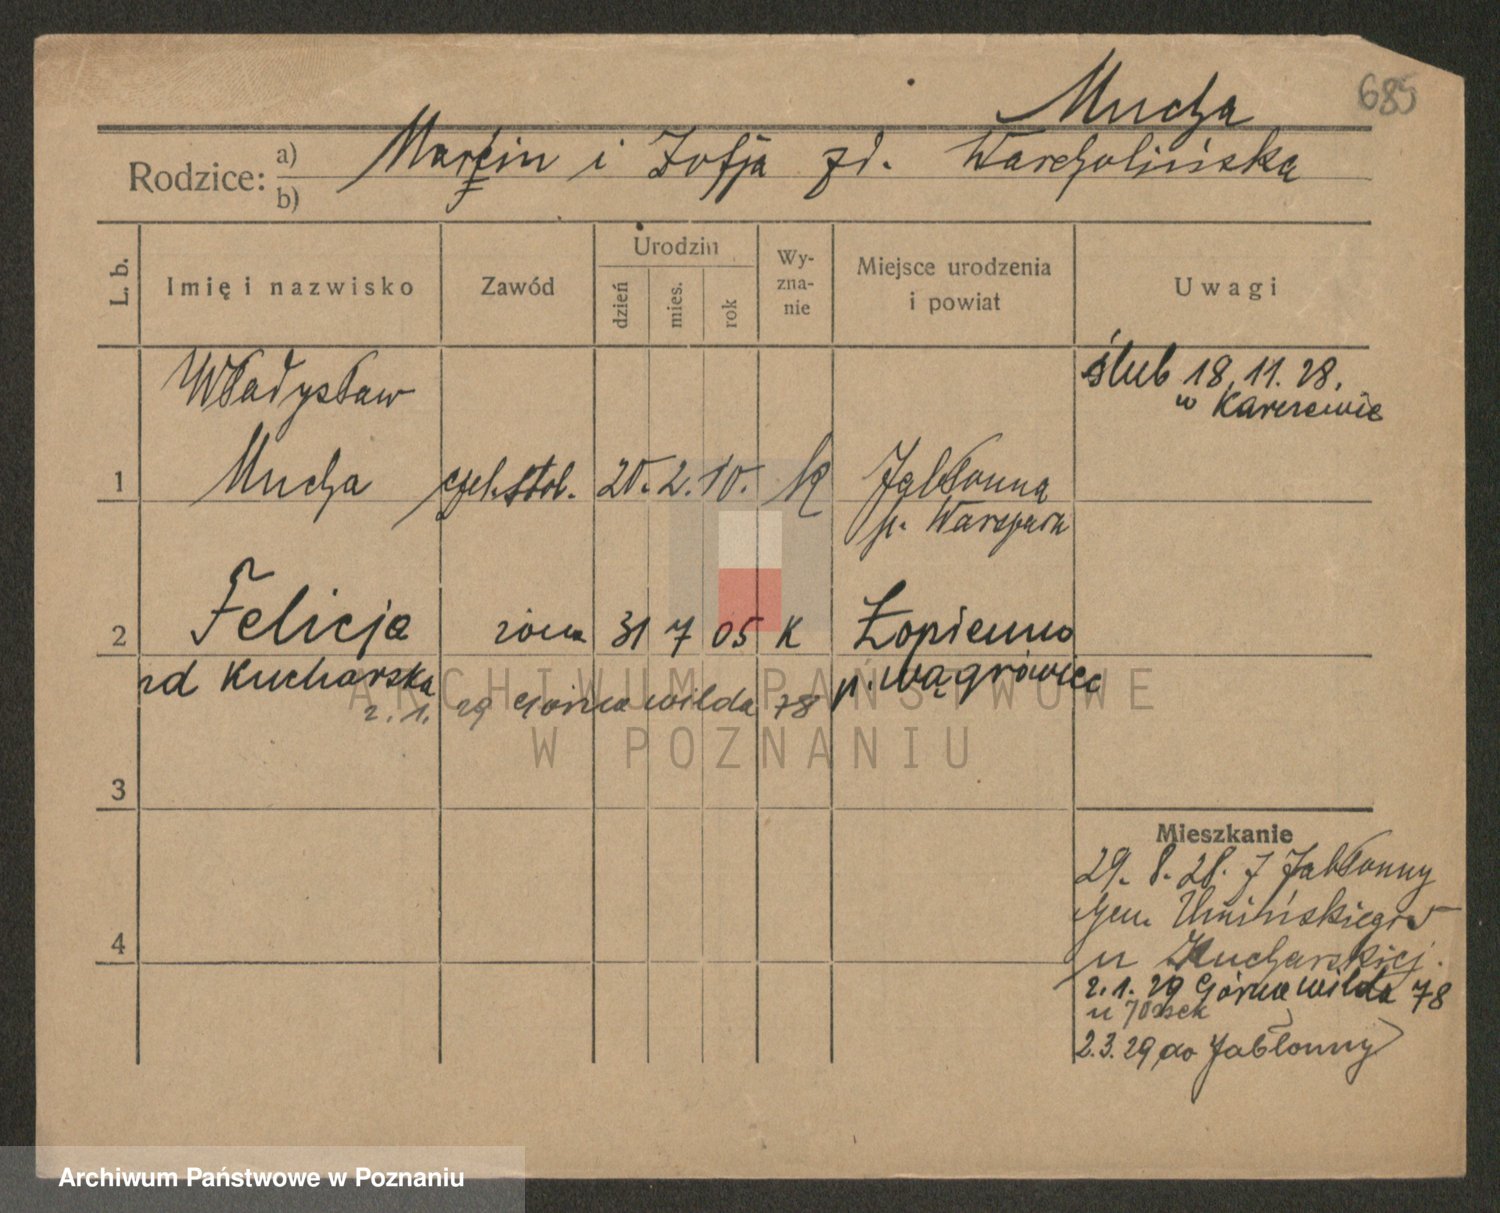 Mucha
685
Rodzice: a) Marcin i Zofja zd. Warcholińska
b)
L. b.
Imię i nazwisko
Zawód
Urodzin
dzień
mies.
rok
Wy-
zna-
nie
Miejsce urodzenia
i powiat
Uwagi
Władysław
ślub 18.11.28.
w
1 Mucha czel. stol. 20. 2. 10. K Jabłonna
p. Warszawa
2 Felicja żona 31 7 05 K Łopienno
zd Kucharska p. wągrowiec
2.1. 29 Górna wilda 78
3
4
Mieszkanie
29. 8. 28. z Jabłonny
Gen. Umińskiego 5
u Kucharskiej.
2.1.29 Górna wilda 78
u
2.3.29 do Jabłonny
ARCHIWUM PAŃSTWOWE
W POZNANIU
Archiwum Państwowe w Poznaniu